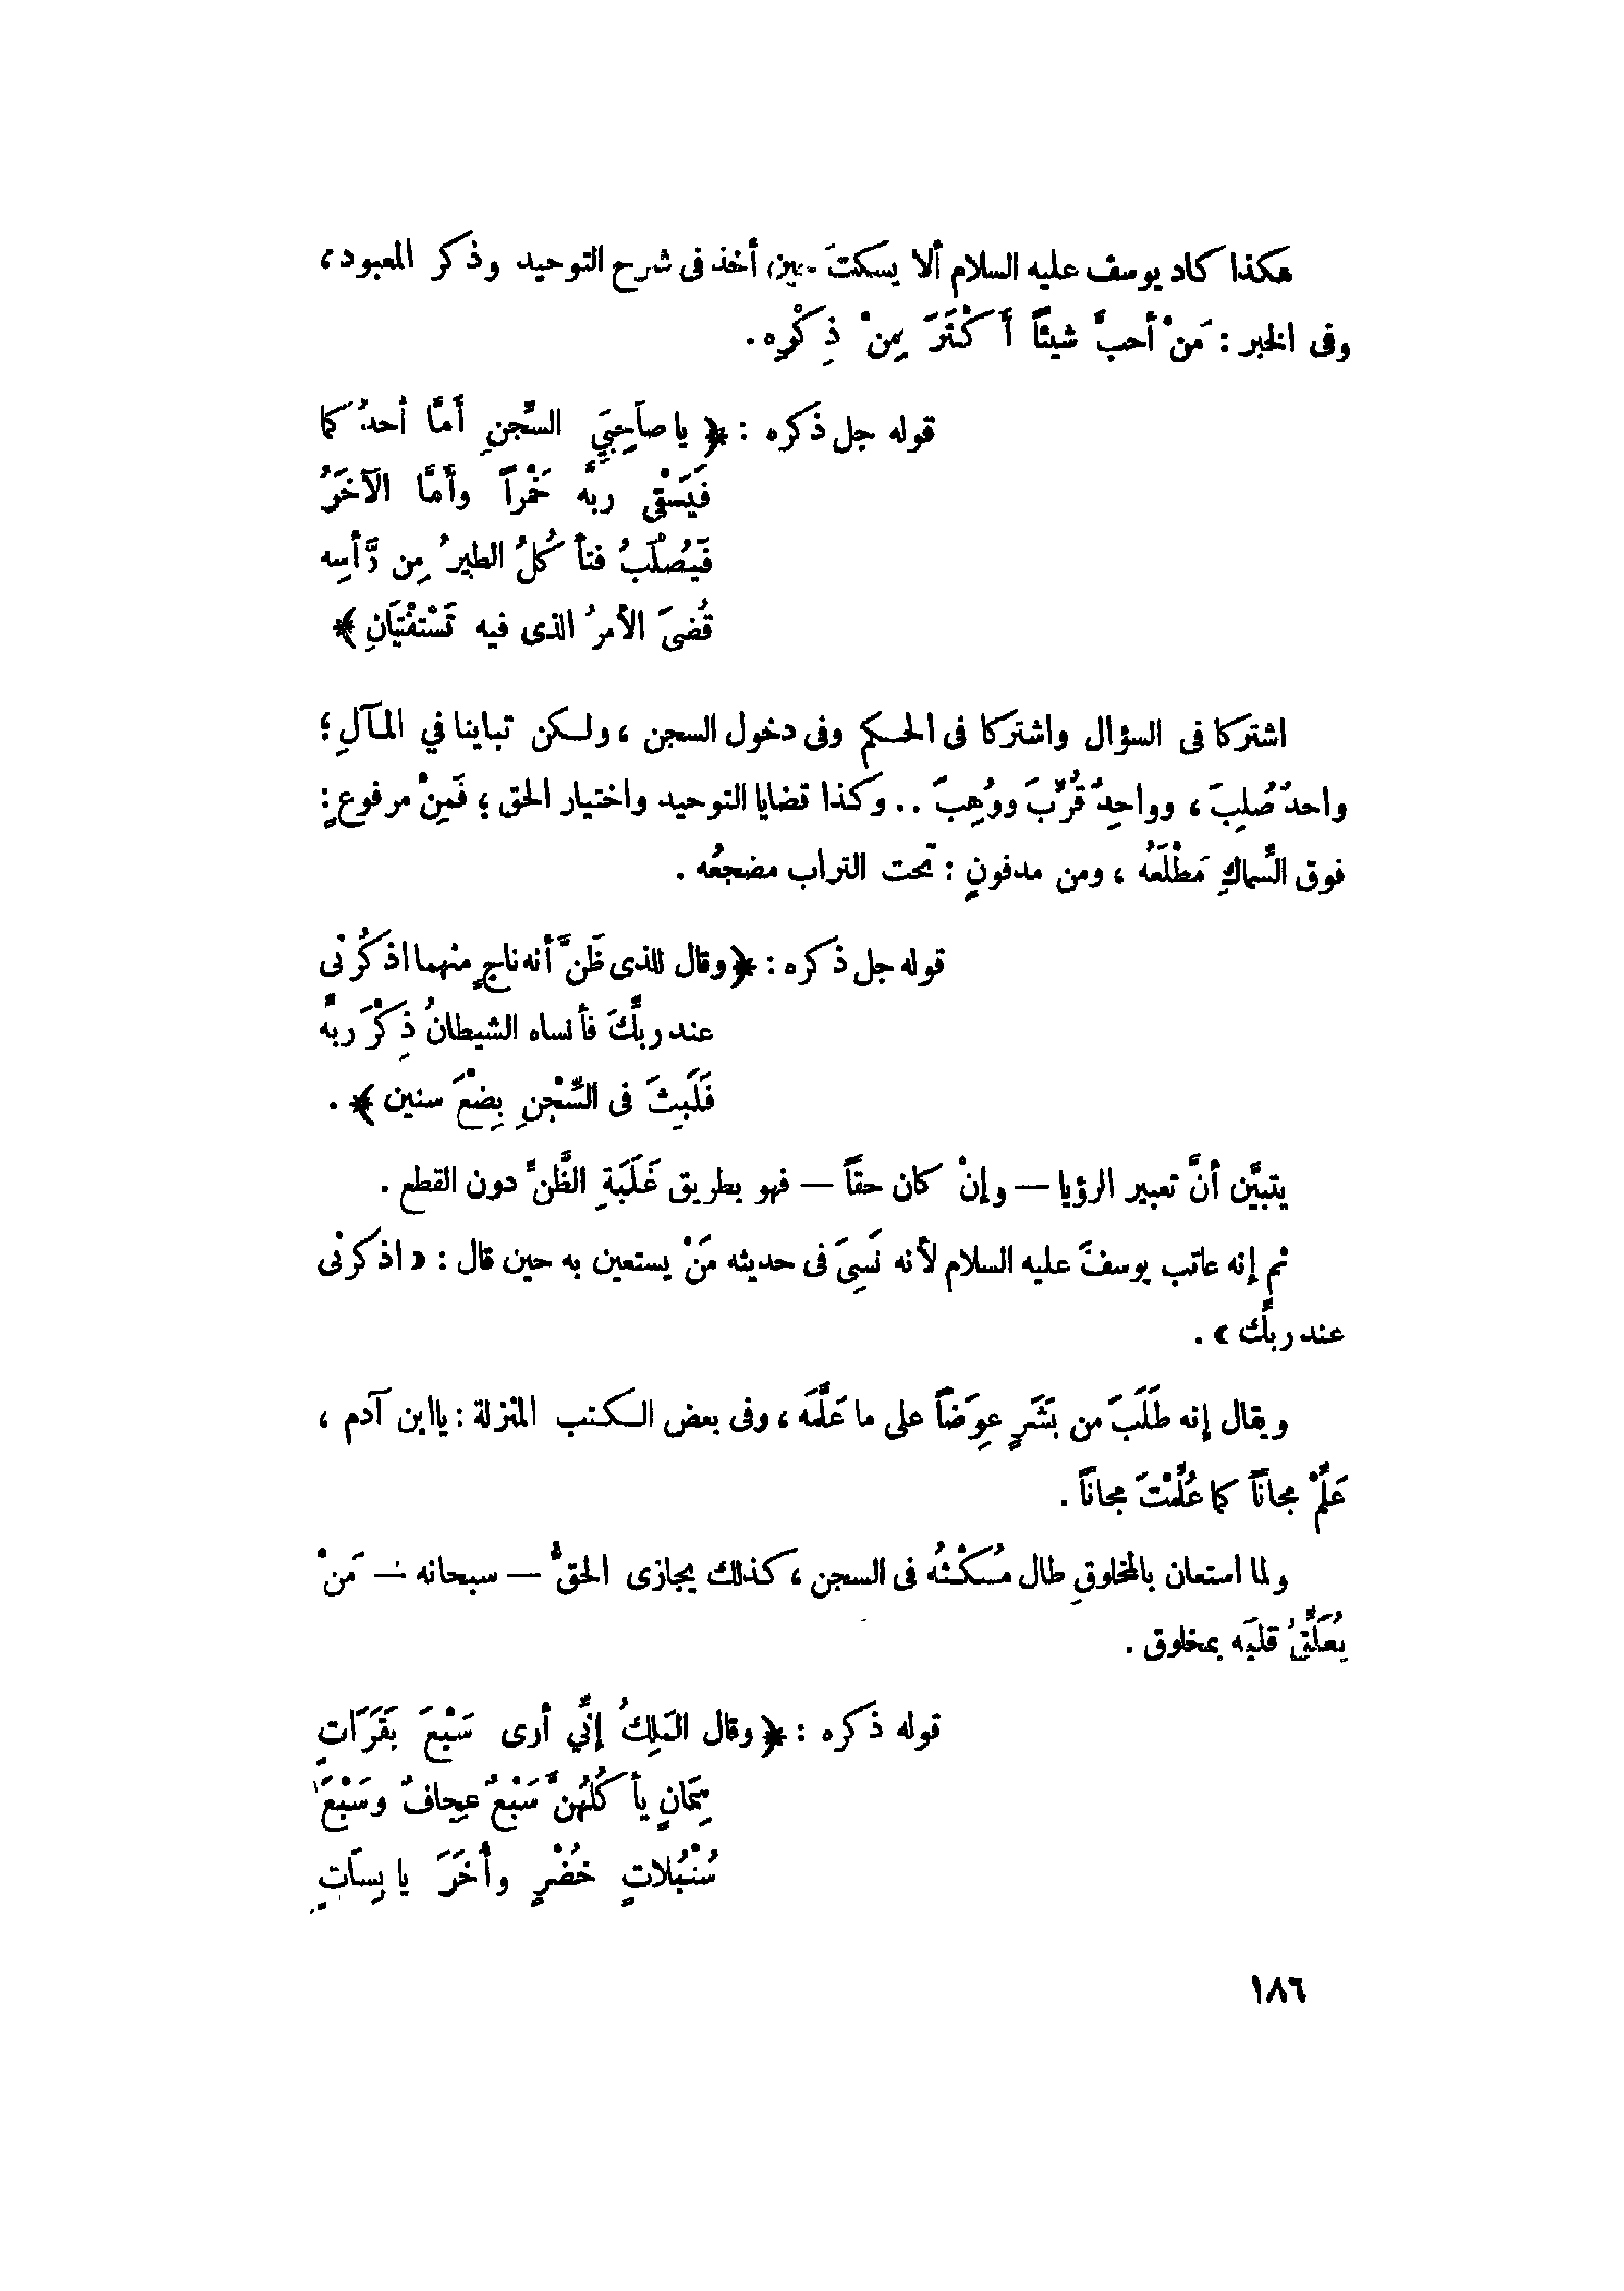 هكذا كاد يوسف عليه السلام ألا يسكتَ حين أخذ فى شرح التوحيد وذكر المعبود ،
وفى الخبر : مَنْ أحبَّ شيئاً أَكْثَرَ مِنْ ذِكْرِه .
قوله جل ذكره : ﴿ يا صاَحِبَيِ السِّجنِ أَمَّا أحدُكما
فَيَسْقِى ربَّه خَمْراً وأَمَّا الآخَرُ
فَيُصْلَبُ فتأكُلُ الطيرُ مِن رَّأسِه
قُضىَ الأمرُ الذى فيه تَسْتَفْتِيَانِ ﴾
اشتركا فى السؤال واشتركا فى الحكم وفى دخول السجن ، ولكن تباينا في المآلِ ؛
واحدٌ صُلِبَ ، وواحِدٌ قُرِّبَ ووُهِبَ .. وكذا قضايا التوحيد واختيار الحق ؛ فَمِنْ مرفوعٍ :
فوق السِّماكِ مَطْلَعُه ، ومن مدفونٍ : تحت التراب مضجعُه .
قوله جل ذكره : ﴿ وقال للذى ظَنَّ أنه ناجٍ منهما اذكُرْنى
عند ربِّكَ فأنساه الشيطانُ ذِكْرَ ربِّه
فَلَبِثَ فى السِّجْنِ بِضْعَ سنين ﴾ .
يتبيَّن أنَّ تعبير الرؤيا — وإنْ كان حقاً — فهو بطريق غَلَبَةِ الظَّنِّ دون القطع .
ثم إنه عاتب يوسفَ عليه السلام لأنه نَسِىَ فى حديثه مَنْ يستعين به حين قال : « اذكرنْى
عند ربِّك » .
ويقال إنه طَلَبَ من بَشَرٍ عِوَضاً على ما عَلَّمَه ، وفى بعض الكتب المنزلة : يا ابن آدم ،
عَلِّمْ مجاناً كما عُلِّمْتَ مجاناً .
ولما استعان بالمخلوقِ طال مُكْثُه فى السجن ، كذلك يجازى الحقُّ — سبحانه — مَنْ
يُعَلِّقُ قلبَه بمخلوق .
قوله ذكره : ﴿ وقال المَلِكُ إنِّي أرى سَبْعَ بَقَرَاتٍ
سِمَانٍ يأكُلُهُنَّ سَبْعٌ عِجافٌ وسَبْعَ
سُنْبُلاتٍ خُضْرٍ وأُخَرَ يابِسَاتٍ
١٨٦